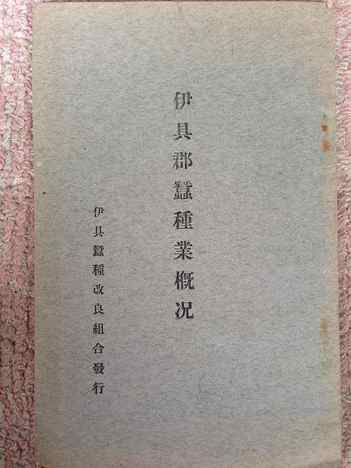 伊具郡蠶種業概况
伊具蠶種改良組合發行